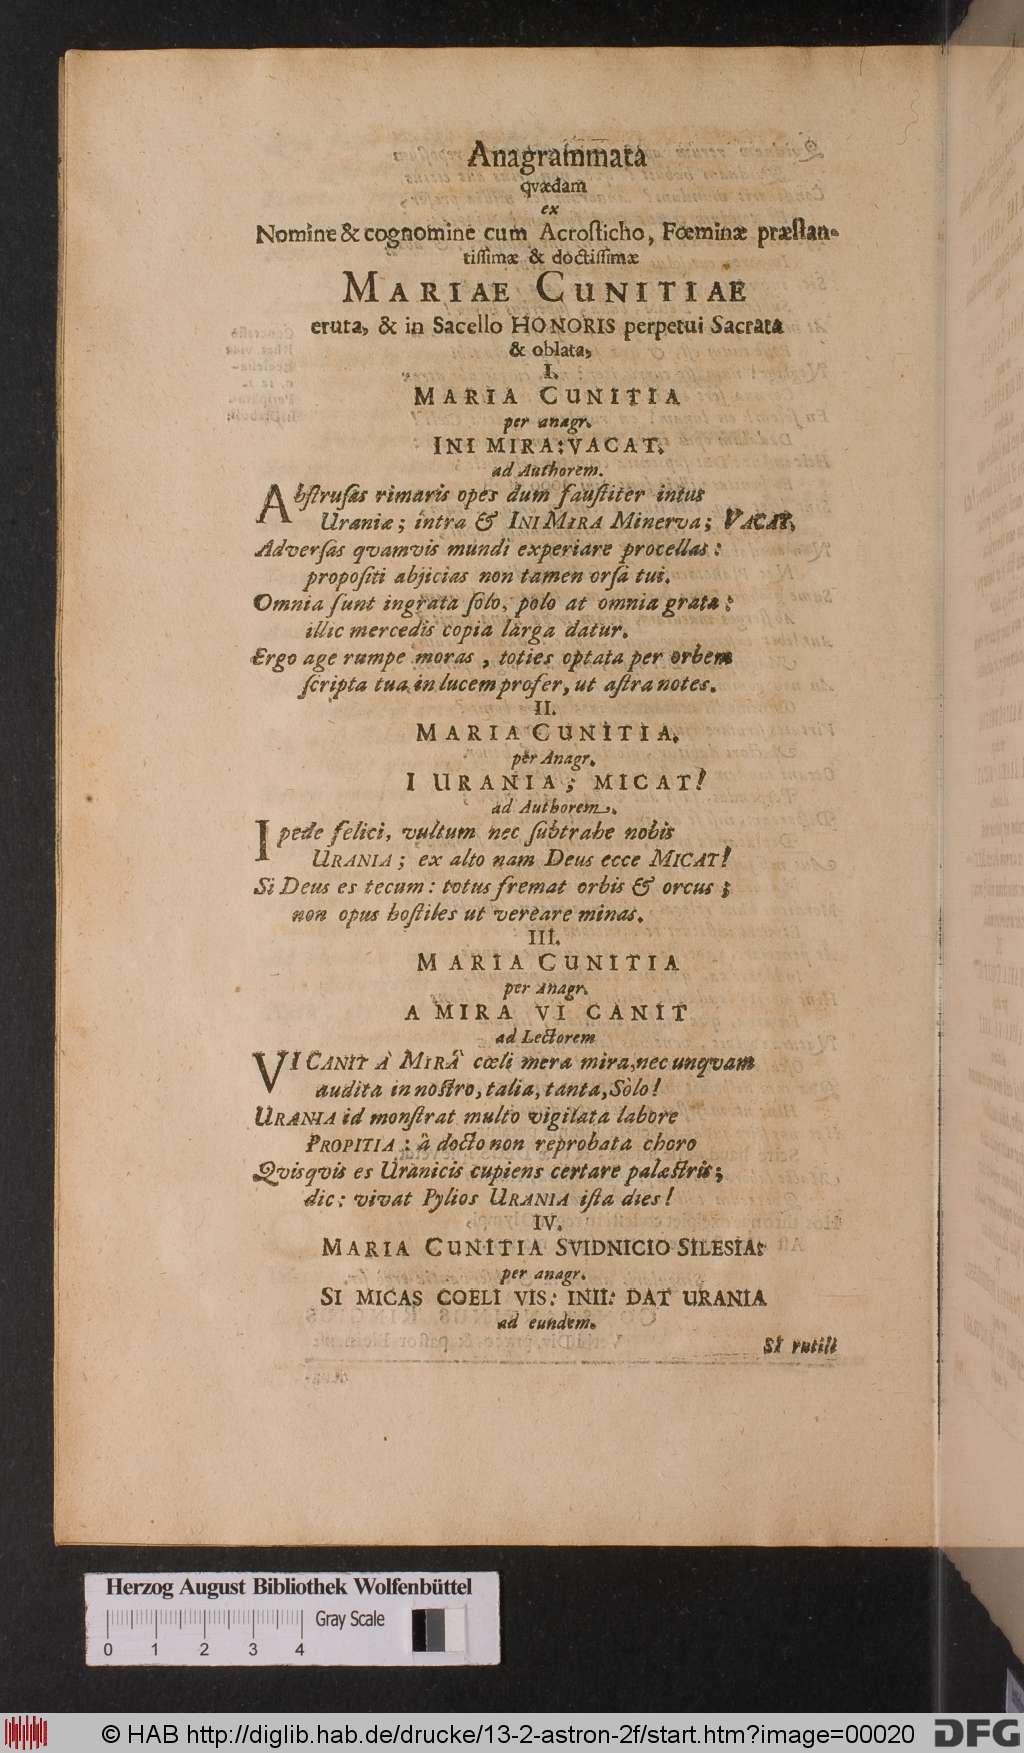 Anagrammata
qvædam
ex
Nomine & cognomine cum Acrosticho, Fœminæ præstan-
tissimæ & doctissimæ
MARIAE CUNITIAE
eruta, & in Sacello HONORIS perpetui Sacrata
& oblata,
I.
MARIA CUNITIA
per anagr.
INI MIRA: VACAT.
ad Authorem.
Abstrusas rimaris opes dum faustiter intus
Uraniæ; intra & INI MIRA Minerva; VACAT.
Adversas qvamvis mundi experiare procellas:
propositi abjicias non tamen orsa tui.
Omnia sunt ingrata solo, polo at omnia grata:
illic mercedis copia larga datur.
Ergo age rumpe moras, toties optata per orbem
scripta tua in lucem profer, ut astra notes.
II.
MARIA CUNITIA.
per Anagr.
I URANIA; MICAT!
ad Authorem.
I pede felici, vultum nec subtrahe nobis
URANIA; ex alto nam Deus ecce MICAT!
Si Deus es tecum: totus fremat orbis & orcus;
non opus hostiles ut vereare minas.
III.
MARIA CUNITIA
per Anagr.
A MIRA VI CANIT
ad Lectorem
VI CANIT À MIRÂ cœli mera mira, nec unqvam
audita in nostro, talia, tanta, Solo!
URANIA id monstrat multo vigilata labore
PROPITIA: â docto non reprobata choro
Qvisqvis es Uranicis cupiens certare palæstris;
dic: vivat Pylios URANIA ista dies!
IV.
MARIA CUNITIA SVIDNICIO SILESIA:
per anagr.
SI MICAS COELI VIS: INII: DAT URANIA
ad eundem.
Si rutili
Herzog August Bibliothek Wolfenbüttel
Gray Scale
0 1 2 3 4
© HAB http://diglib.hab.de/drucke/13-2-astron-2f/start.htm?image=00020
DFG